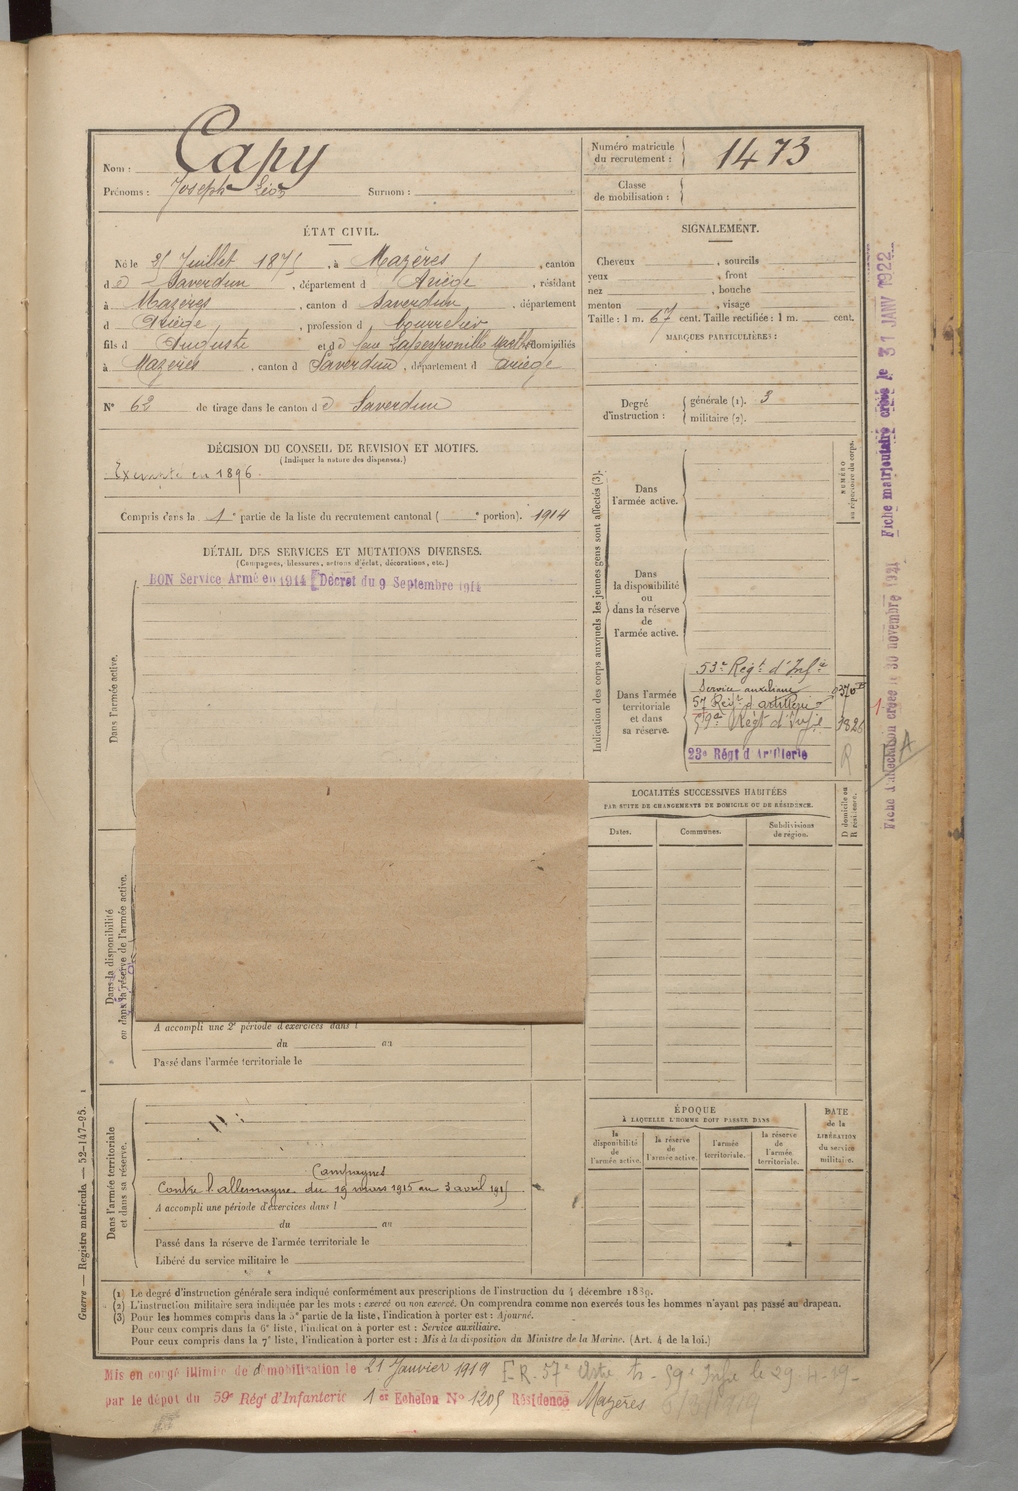 Nom : Capy
Prénoms : Joseph Léon Surnom :
Numéro matricule du recrutement : 1473
Classe de mobilisation :
ÉTAT CIVIL.
Né le 25 Juillet 1875, à Mazères, canton
d e Saverdun, département d Ariège, résidant
à Mazères, canton d Saverdun, département
d Ariège, profession d bourrelier
fils d Auguste et de domiciliés
à Mazères, canton d Saverdun, département d Ariège
N° 62 de tirage dans le canton d e Saverdun
SIGNALEMENT.
Cheveux , sourcils
yeux , front
nez , bouche
menton , visage
Taille : 1 m. 67 cent. Taille rectifiée : 1 m. cent.
MARQUES PARTICULIÈRES :
Degré d'instruction : générale (1). 3
militaire (2).
DÉCISION DU CONSEIL DE REVISION ET MOTIFS.
(Indiquer la nature des dispenses.)
Exempté en 1896.
Compris dans la 1e partie de la liste du recrutement cantonal ( e portion). 1914
DÉTAIL DES SERVICES ET MUTATIONS DIVERSES.
(Campagnes, blessures, actions d'éclat, décorations, etc.)
BON Service Armé en 1914 [Décret du 9 Septembre 1914
Dans l'armée active.
Dans la disponibilité
ou dans la réserve de l'armée active.
A accompli une 2e période d'exercices dans l
du au
Passé dans l'armée territoriale le
Dans l'armée territoriale
et dans sa réserve.
Campagnes
Contre l'allemagne du 19 mars 1915 au 3 avril 1915
A accompli une période d'exercices dans l
du au
Passé dans la réserve de l'armée territoriale le
Libéré du service militaire le
Indication des corps auxquels les jeunes gens sont affectés (3).
NUMÉRO
au répertoire du corps.
Dans
l'armée active.
Dans
la disponibilité
ou
dans la réserve
de
l'armée active.
Dans l'armée
territoriale
et dans
sa réserve.
53e Regt d'Infie
Service auxiliaire
57 Regt d'artillerie
59e Régt d'Infie
23e Régt d'Artillerie
R
LOCALITÉS SUCCESSIVES HABITÉES
PAR SUITE DE CHANGEMENTS DE DOMICILE OU DE RÉSIDENCE.
Dates. Communes. Subdivisions de région. D domicile ou R résidence.
ÉPOQUE
À LAQUELLE L'HOMME DOIT PASSER DANS
la disponibilité de l'armée active. la réserve de l'armée active. l'armée territoriale. la réserve de l'armée territoriale.
DATE de la LIBÉRATION du service militaire.
(1) Le degré d'instruction générale sera indiqué conformément aux prescriptions de l'instruction du 4 décembre 1889.
(2) L'instruction militaire sera indiquée par les mots : exercé ou non exercé. On comprendra comme non exercés tous les hommes n'ayant pas passé au drapeau.
(3) Pour les hommes compris dans la 5e partie de la liste, l'indication à porter est : Ajourné.
Pour ceux compris dans la 6e liste, l'indication à porter est : Service auxiliaire.
Pour ceux compris dans la 7e liste, l'indication à porter est : Mis à la disposition du Ministre de la Marine. (Art. 4 de la loi.)
Mis en congé illimité de démobilisation le 21 Janvier 1919 R. 57e Artie 59e Infie le 29-4-19-
par le dépôt du 59e Régt d'Infanterie 1er Echelon N° 1205 Résidence Mazères
Guerre — Registre matricule — 52-147-95.
Fiche matriculaire créée le 31 JANV 1922
Fiche d'affectation créée le 30 novembre 1931